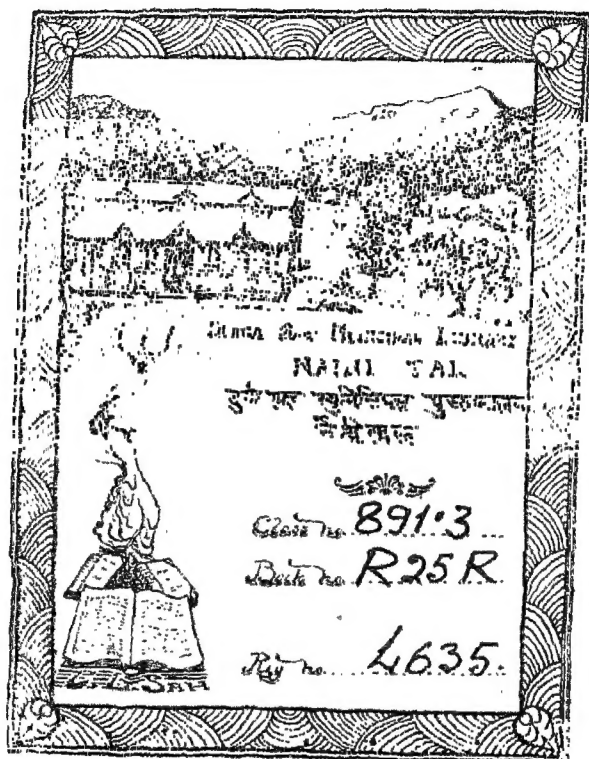 DURGA SAH MUNICIPAL LIBRARY
NAINI TAL
दुर्गा साह म्युनिसिपल पुस्तकालय
नैनीताल
Class no. 891.3
Book no. R25R
Reg no. 4635.